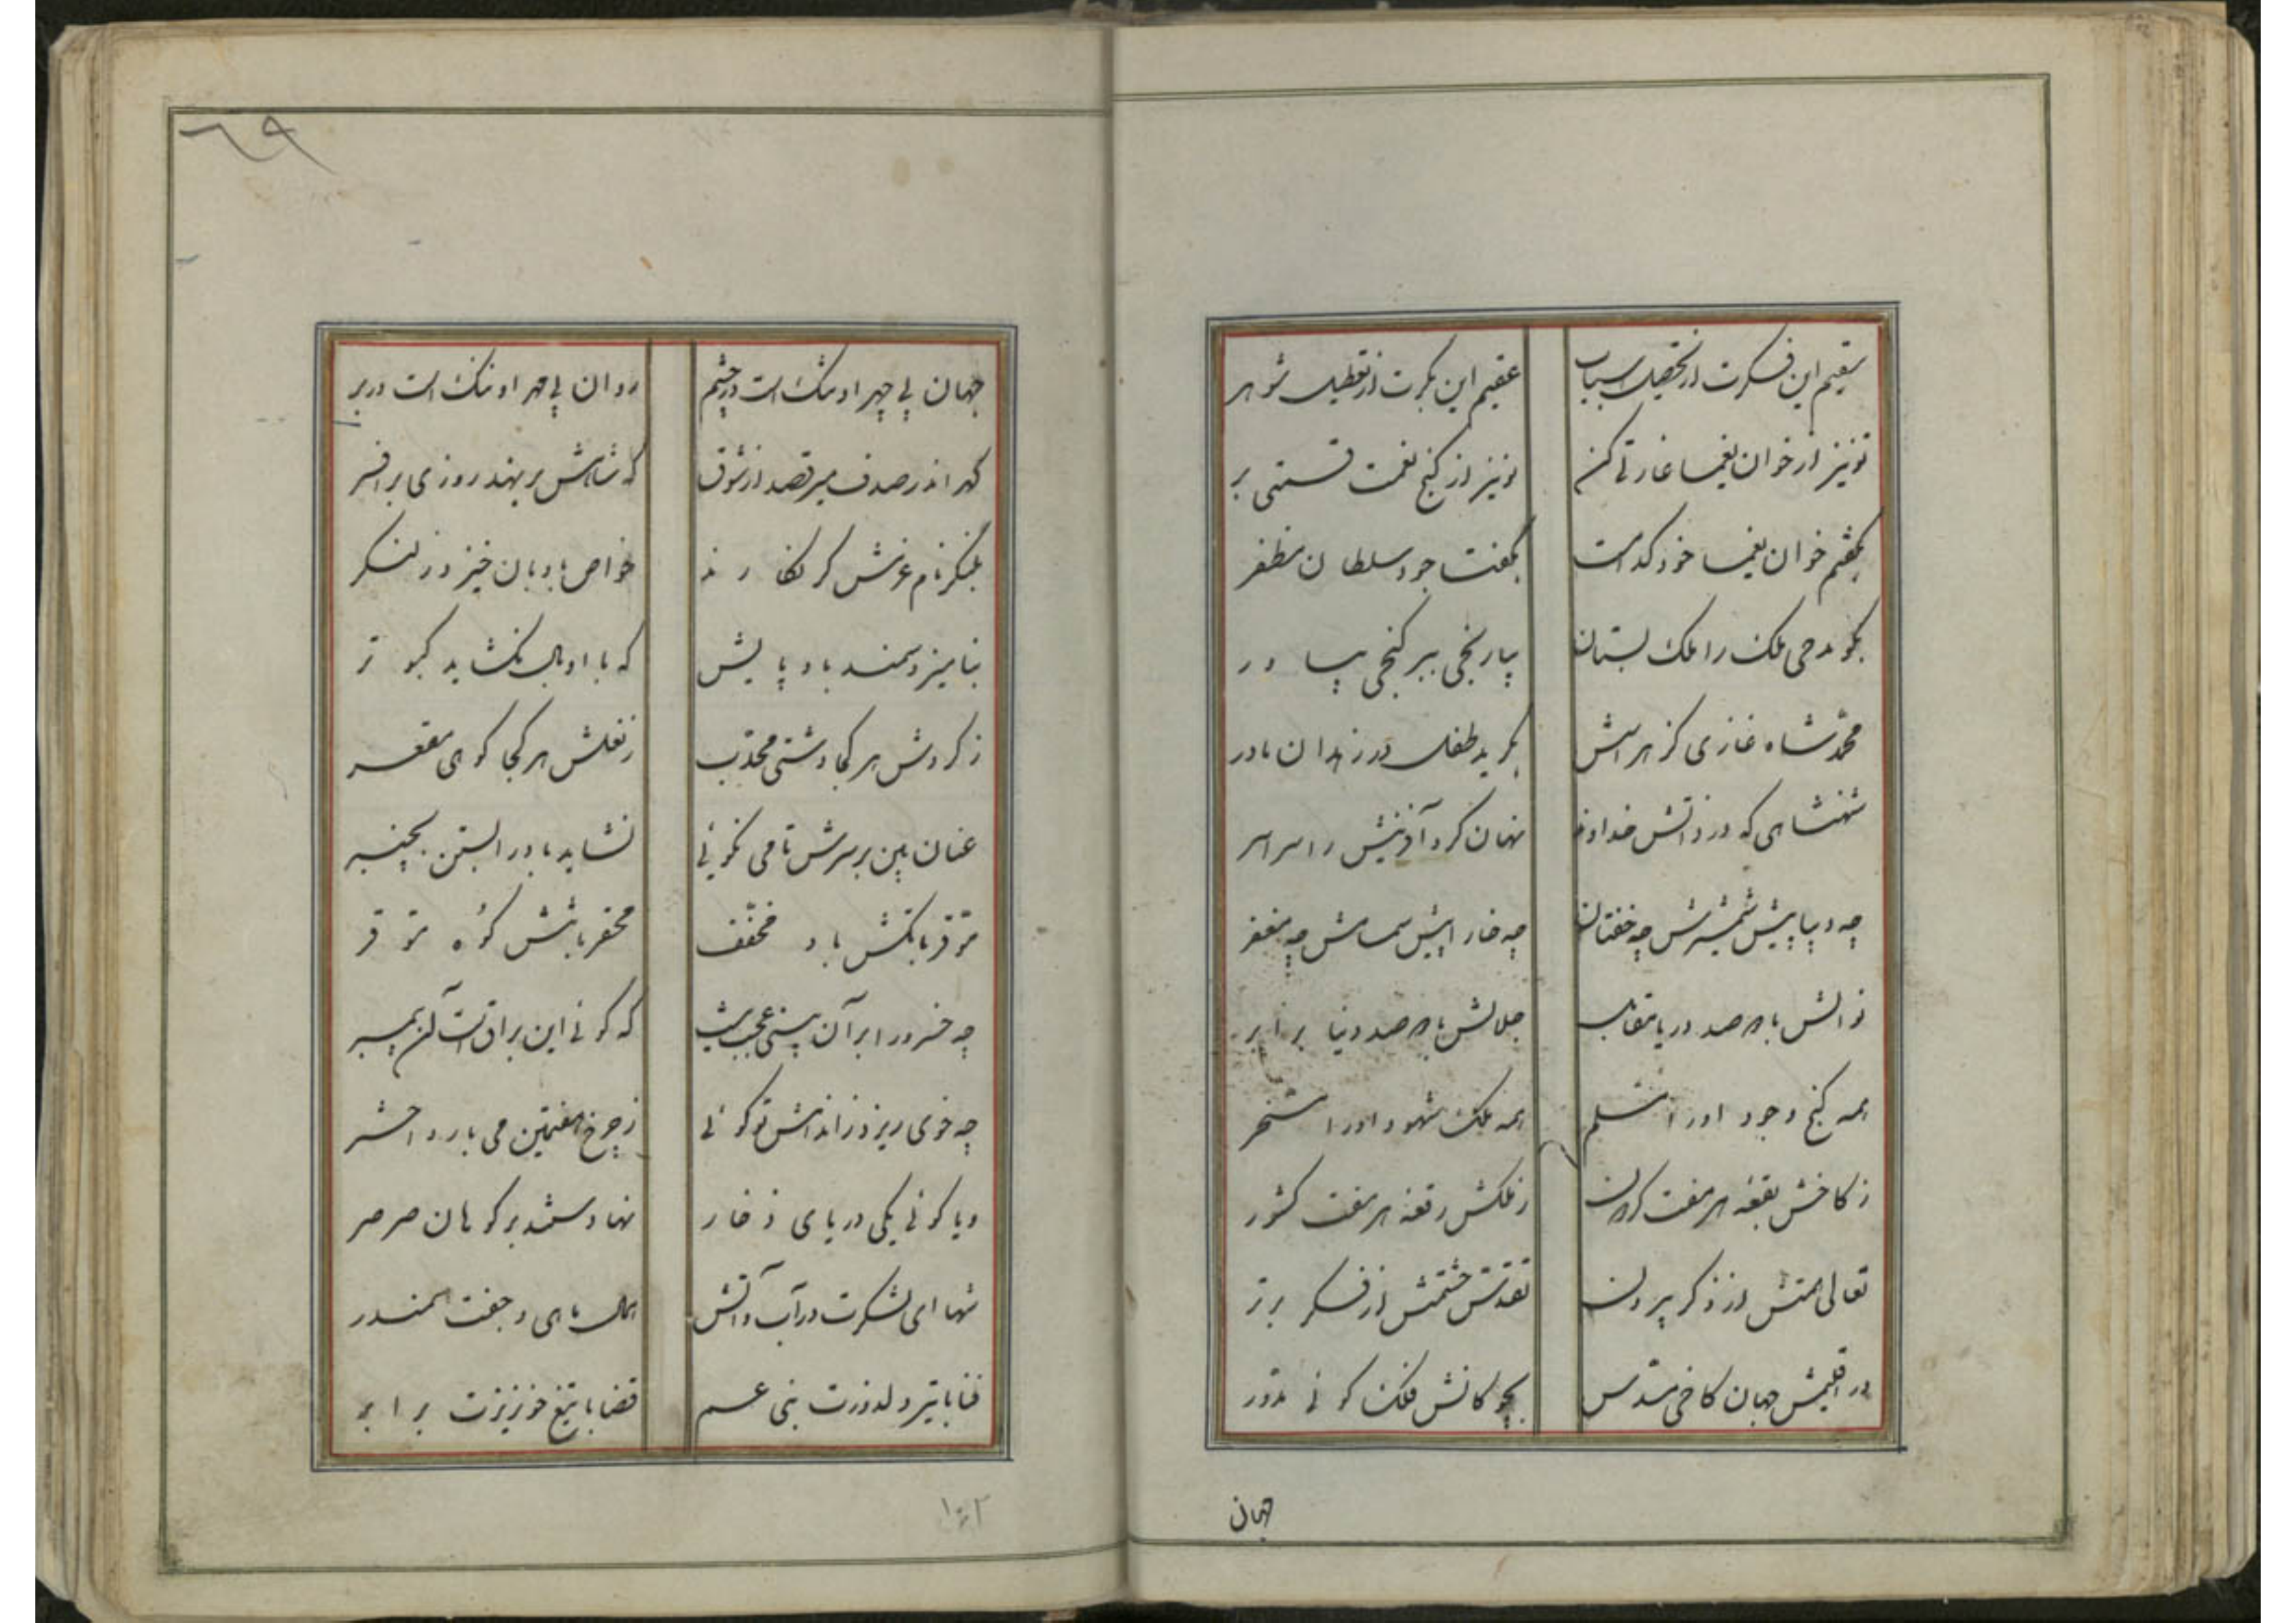 سقیم این فکرت از تحصیل اسباب عقیم این بکرت از تعطیل شوهر
تو نیز از خوان یغما غارتی کن تو نیز از گنج نعمت قسمتی بر
بگفتم خوان یغما خود کدامست بگفتا جود سلطان مظفر
بگو مدحی ملک را ملک بستان بیار نجی ببر گنجی بیاور
محمد شاه غازی کز هراسش بگرید طفل در زهدان مادر
شهنشاهی که در ذاتش خداوند نهان کرد آفرینش را سراسر
چه دیبا پیش شمشیرش چه خفتان چه خارا پیش صمصامش چه مغفر
نوالش با دو صد دریا مقابل جلالش با دو صد دنیا برابر
همه گنج وجود او را مسلم همه ملک شهود او را مسخر
ز کاخش بقعه هر هفت گردون ز ملکش رقعه هر هفت کشور
تعالی همتش از ذکر بیرون تقدس حشمتش از فکر برتر
در اقلیمش جهان کاخی مسدس بچوگانش فلک گوئی مدور
جهان
٦٩
جهان بی چهر او مشک است در چشم روان بی مهر او ننگ است در بر
گهر اندر صدف میرقصد از شوق که شاهش برنهد روزی بر افسر
بلنگر نام عزمش گر نگارند خواص بادبان خیزد ز لنگر
بنامیزد سمند باد پایش که با او بال نگشاید کبوتر
ز گردش هر کجا دشتی محدب ز نعلش هر کجا کوهی مقعر
عنان بین بر سرش تا می نگوئی نشاید باد را بستن بچنبر
موقر با تکش باد مخفف محقر با تنش کوه موقر
چه خسرو را بر آن بینی عجب نیست که گوئی این براق است آن پیمبر
چه خوی ریزد ز اندامش تو گوئی ز چرخ هفتمین می بارد اختر
و یا گوئی یکی دریای ذخار نهادستند بر کوهان صرصر
شها ای لشکرت در آب و آتش همال ماهی و جفت سمندر
فنا با تیر دلدوزت بنی عم قضا با تیغ خونریزت برادر